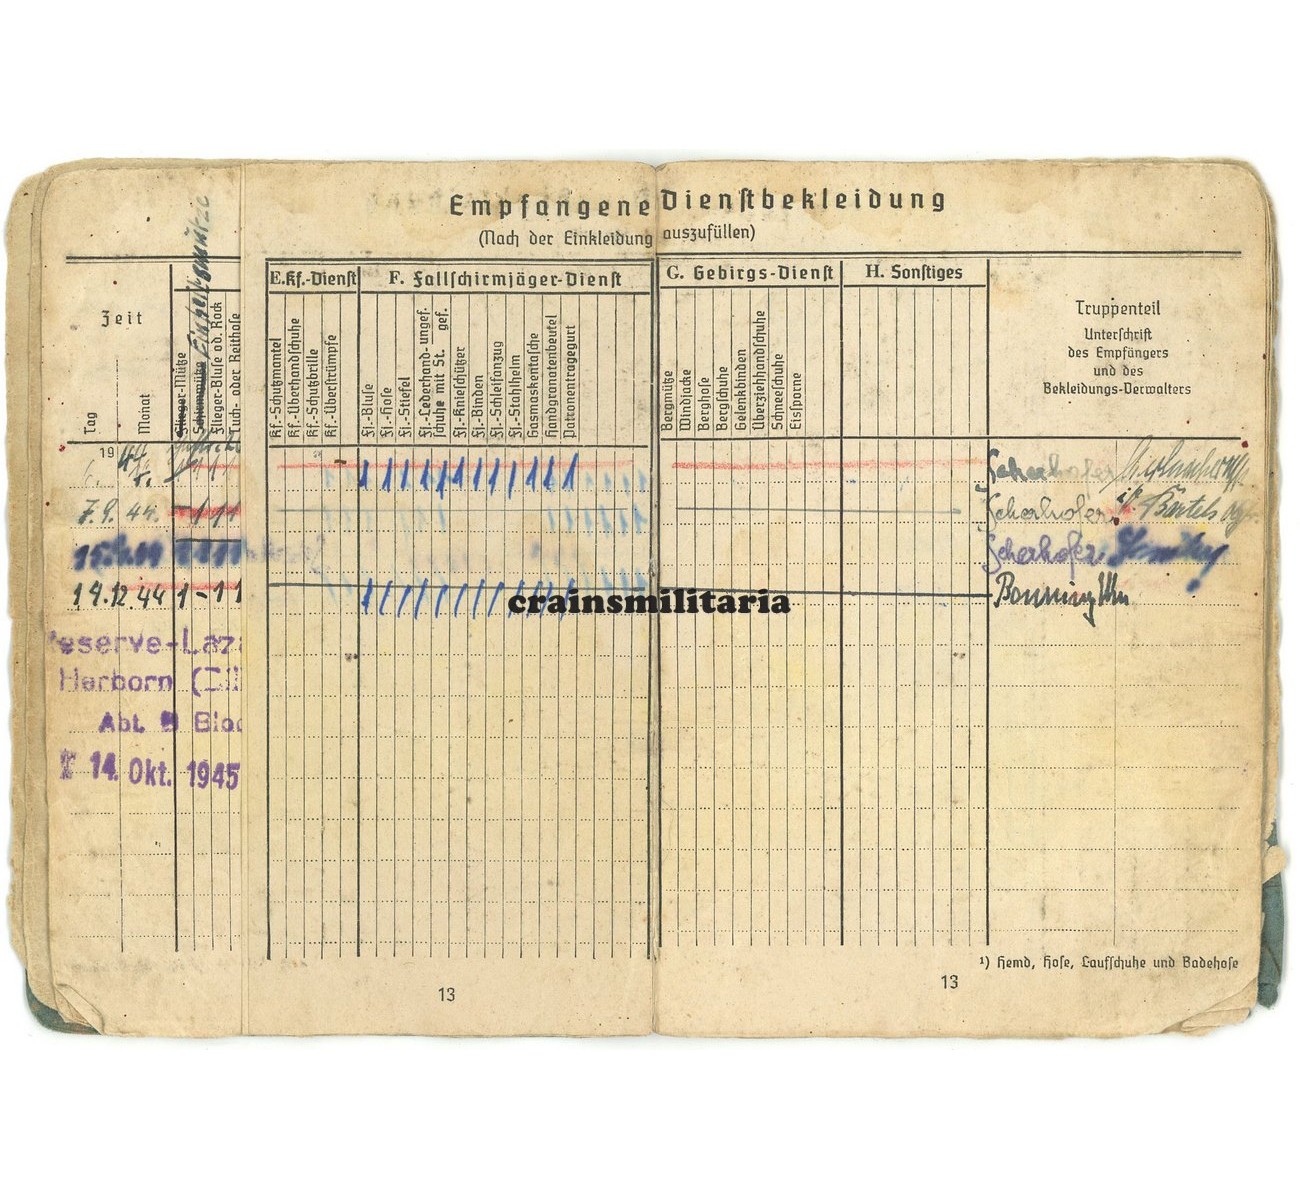 Empfangene Dienstbekleidung
(Nach der Einkleidung auszufüllen)
Zeit
Tag
Monat
Flieger-Mütze
Schirmmütze
Einheitsmütze
Flieger-Bluse od. Rock
Tuch- oder Reithose
E. Kf.-Dienst
Kf.-Schutzmantel
Kf.-Überhandschuhe
Kf.-Schutzbrille
Kf.-Überstrümpfe
F. Fallschirmjäger-Dienst
Fj.-Bluse
Fj.-Hose
Fj.-Stiefel
Fj.-Lederhand- ungef.
schuhe mit St. gef.
Fj.-Knieschützer
Fj.-Binden
Fj.-Schleifanzug
Fj.-Stahlhelm
Gasmaskentasche
Handgranatenbeutel
Patronentragegurt
G. Gebirgs-Dienst
Bergmütze
Windjacke
Berghose
Bergschuhe
Gelenkbinden
Überziehhandschuhe
Schneeschuhe
Eissporne
H. Sonstiges
Truppenteil
Unterschrift
des Empfängers
und des
Bekleidungs-Verwalters
19 44
Scherhofer
7.9. 44. - 1 1 1 Scherhofer i.V. Bartels
Scherhofer
19.12.44 1 - 1 1 Bonning
crainsmilitaria
Reserve-Laza
Herborn (Dill
Abt. B Bloc
14. Okt. 1945
¹) Hemd, Hose, Laufschuhe und Badehose
13
13